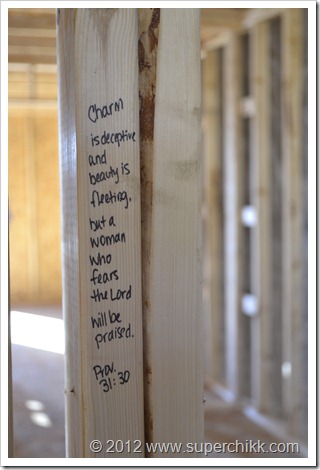 Charm
is deceptive
and
beauty is
fleeting.
but a
woman
who
fears
the Lord
will be
praised.
Prov.
31:30
© 2012 www.superchikk.com